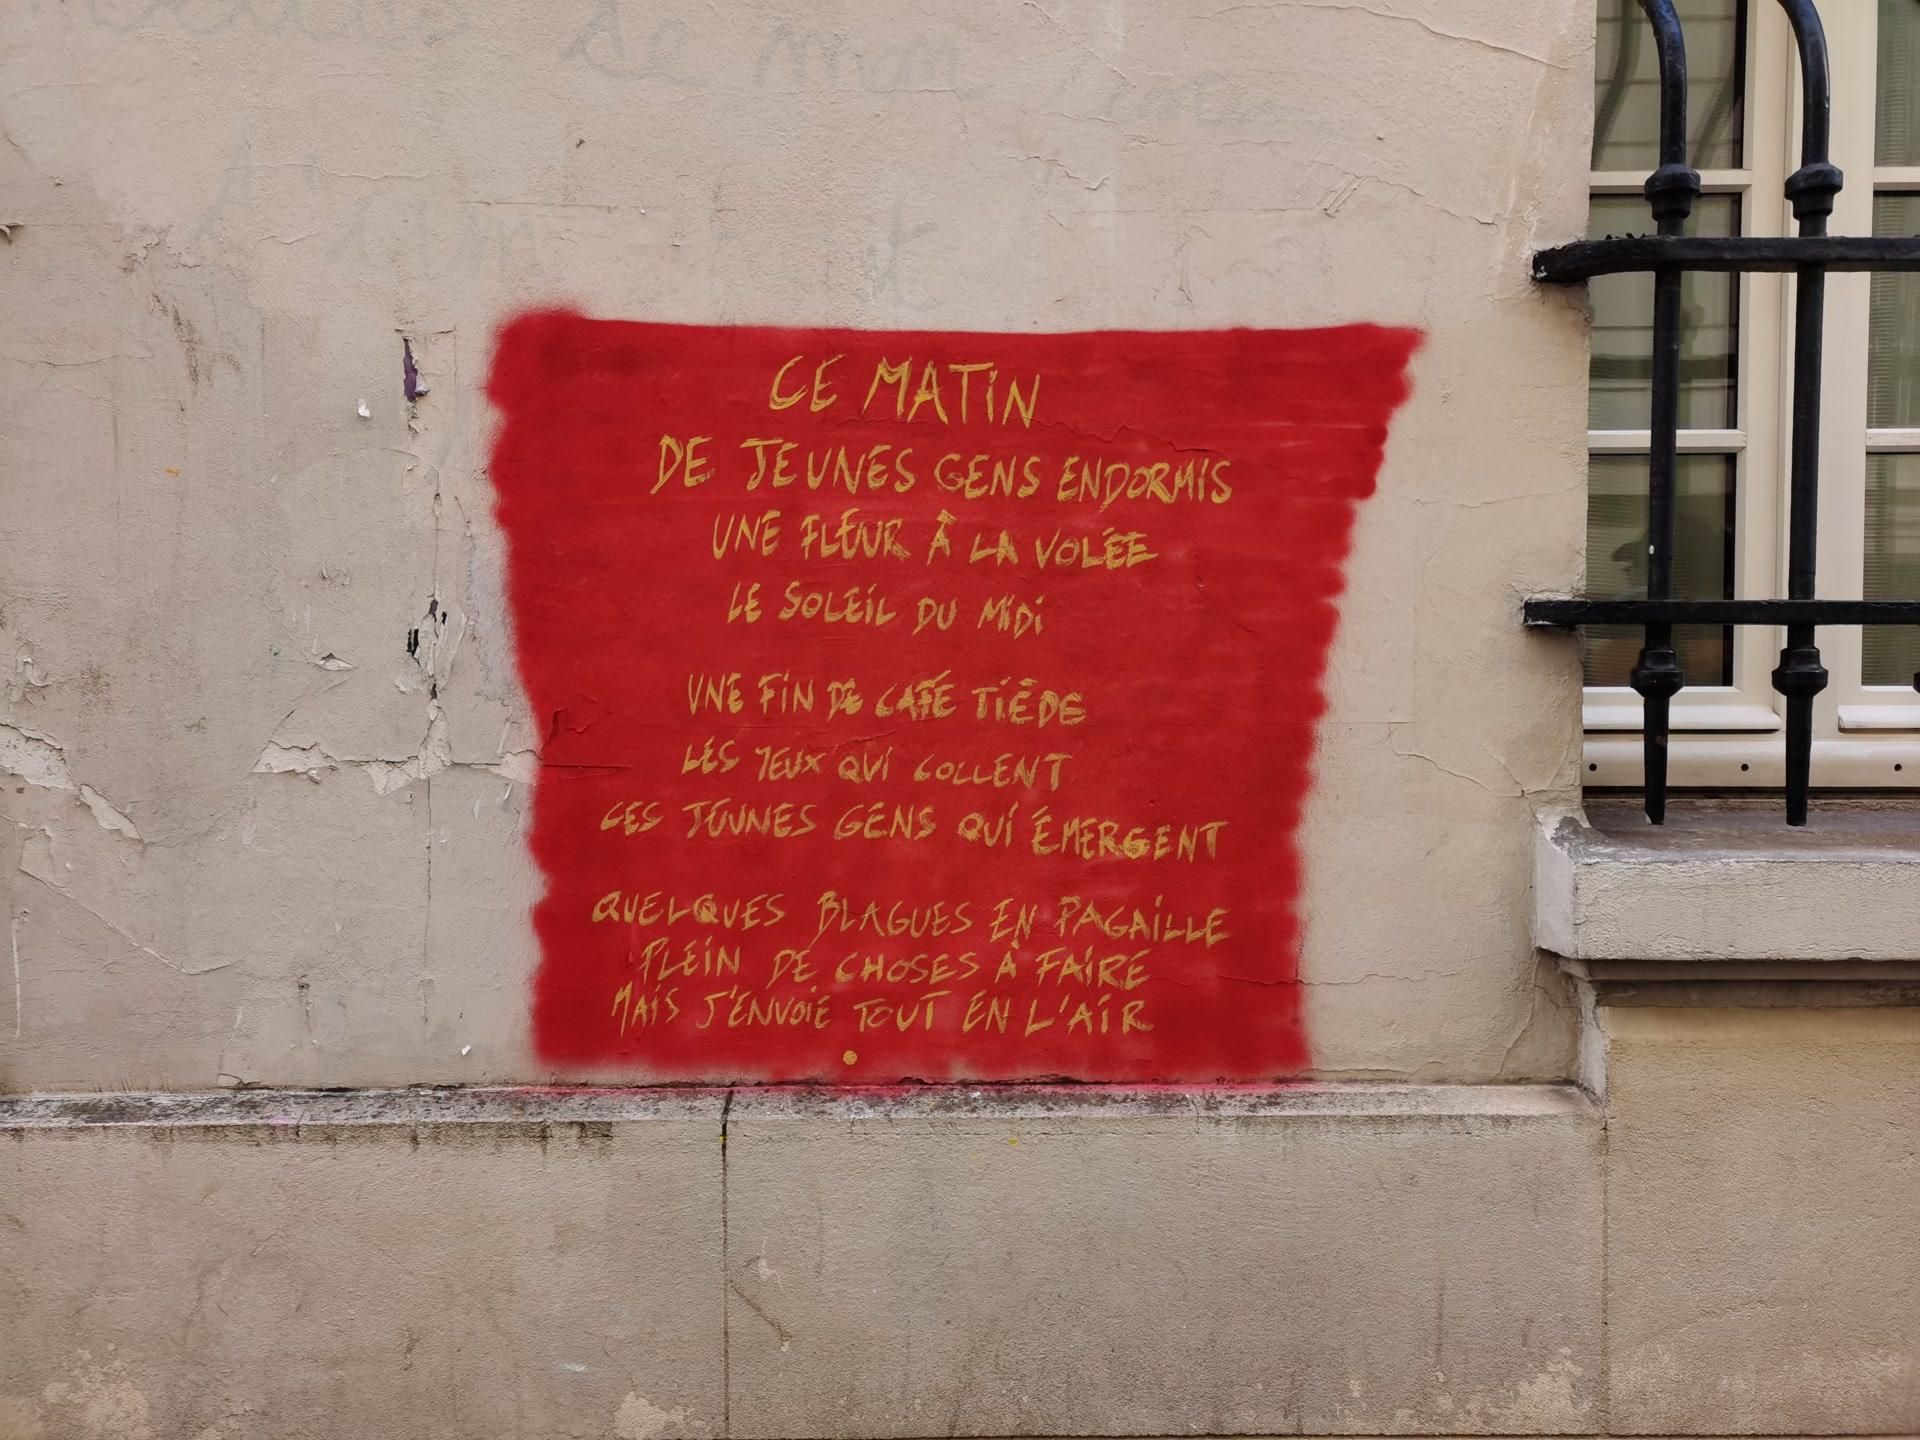 de mon
CE MATIN
DE JEUNES GENS ENDORMIS
UNE FLEUR À LA VOLÉE
LE SOLEIL DU MIDI
UNE FIN DE CAFÉ TIÈDE
LES YEUX QUI COLLENT
CES JEUNES GENS QUI ÉMERGENT
QUELQUES BLAGUES EN PAGAILLE
PLEIN DE CHOSES À FAIRE
MAIS J'ENVOIE TOUT EN L'AIR